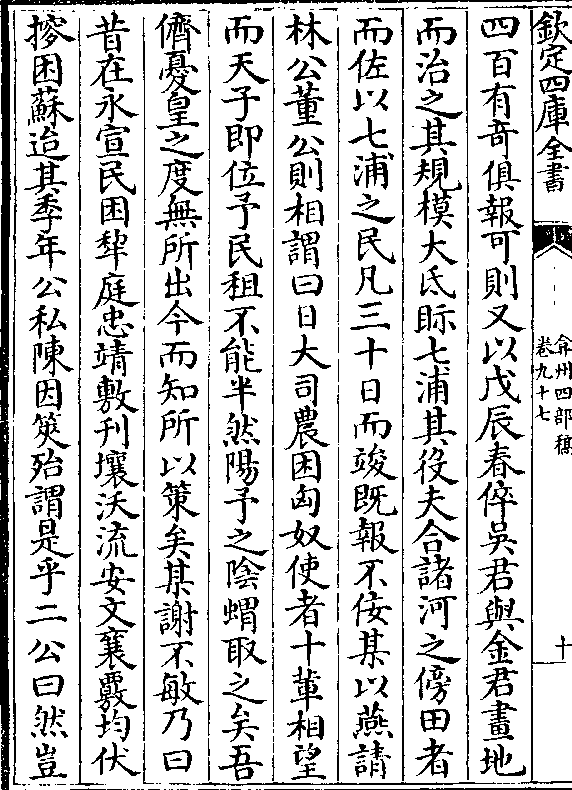 欽定四庫全書
弇州四部稿
卷九十七
十
四百有奇俱報可則又以戊辰春倅吳君與金君畫地
而治之其規模大氐眎七浦其役夫合諸河之傍田者
而佐以七浦之民凡三十日而竣既報不佞某以燕請
林公董公則相謂曰日大司農困匈奴使者十輩相望
而天子即位予民租不能半然陽予之陰蝟取之矣吾
儕憂皇之度無所出今而知所以策矣某謝不敏乃曰
昔在永宣民困犂庭忠靖敷刊壤沃流安文襄覈均伏
摉困蘇迨其季年公私陳因筴殆謂是乎二公曰然豈